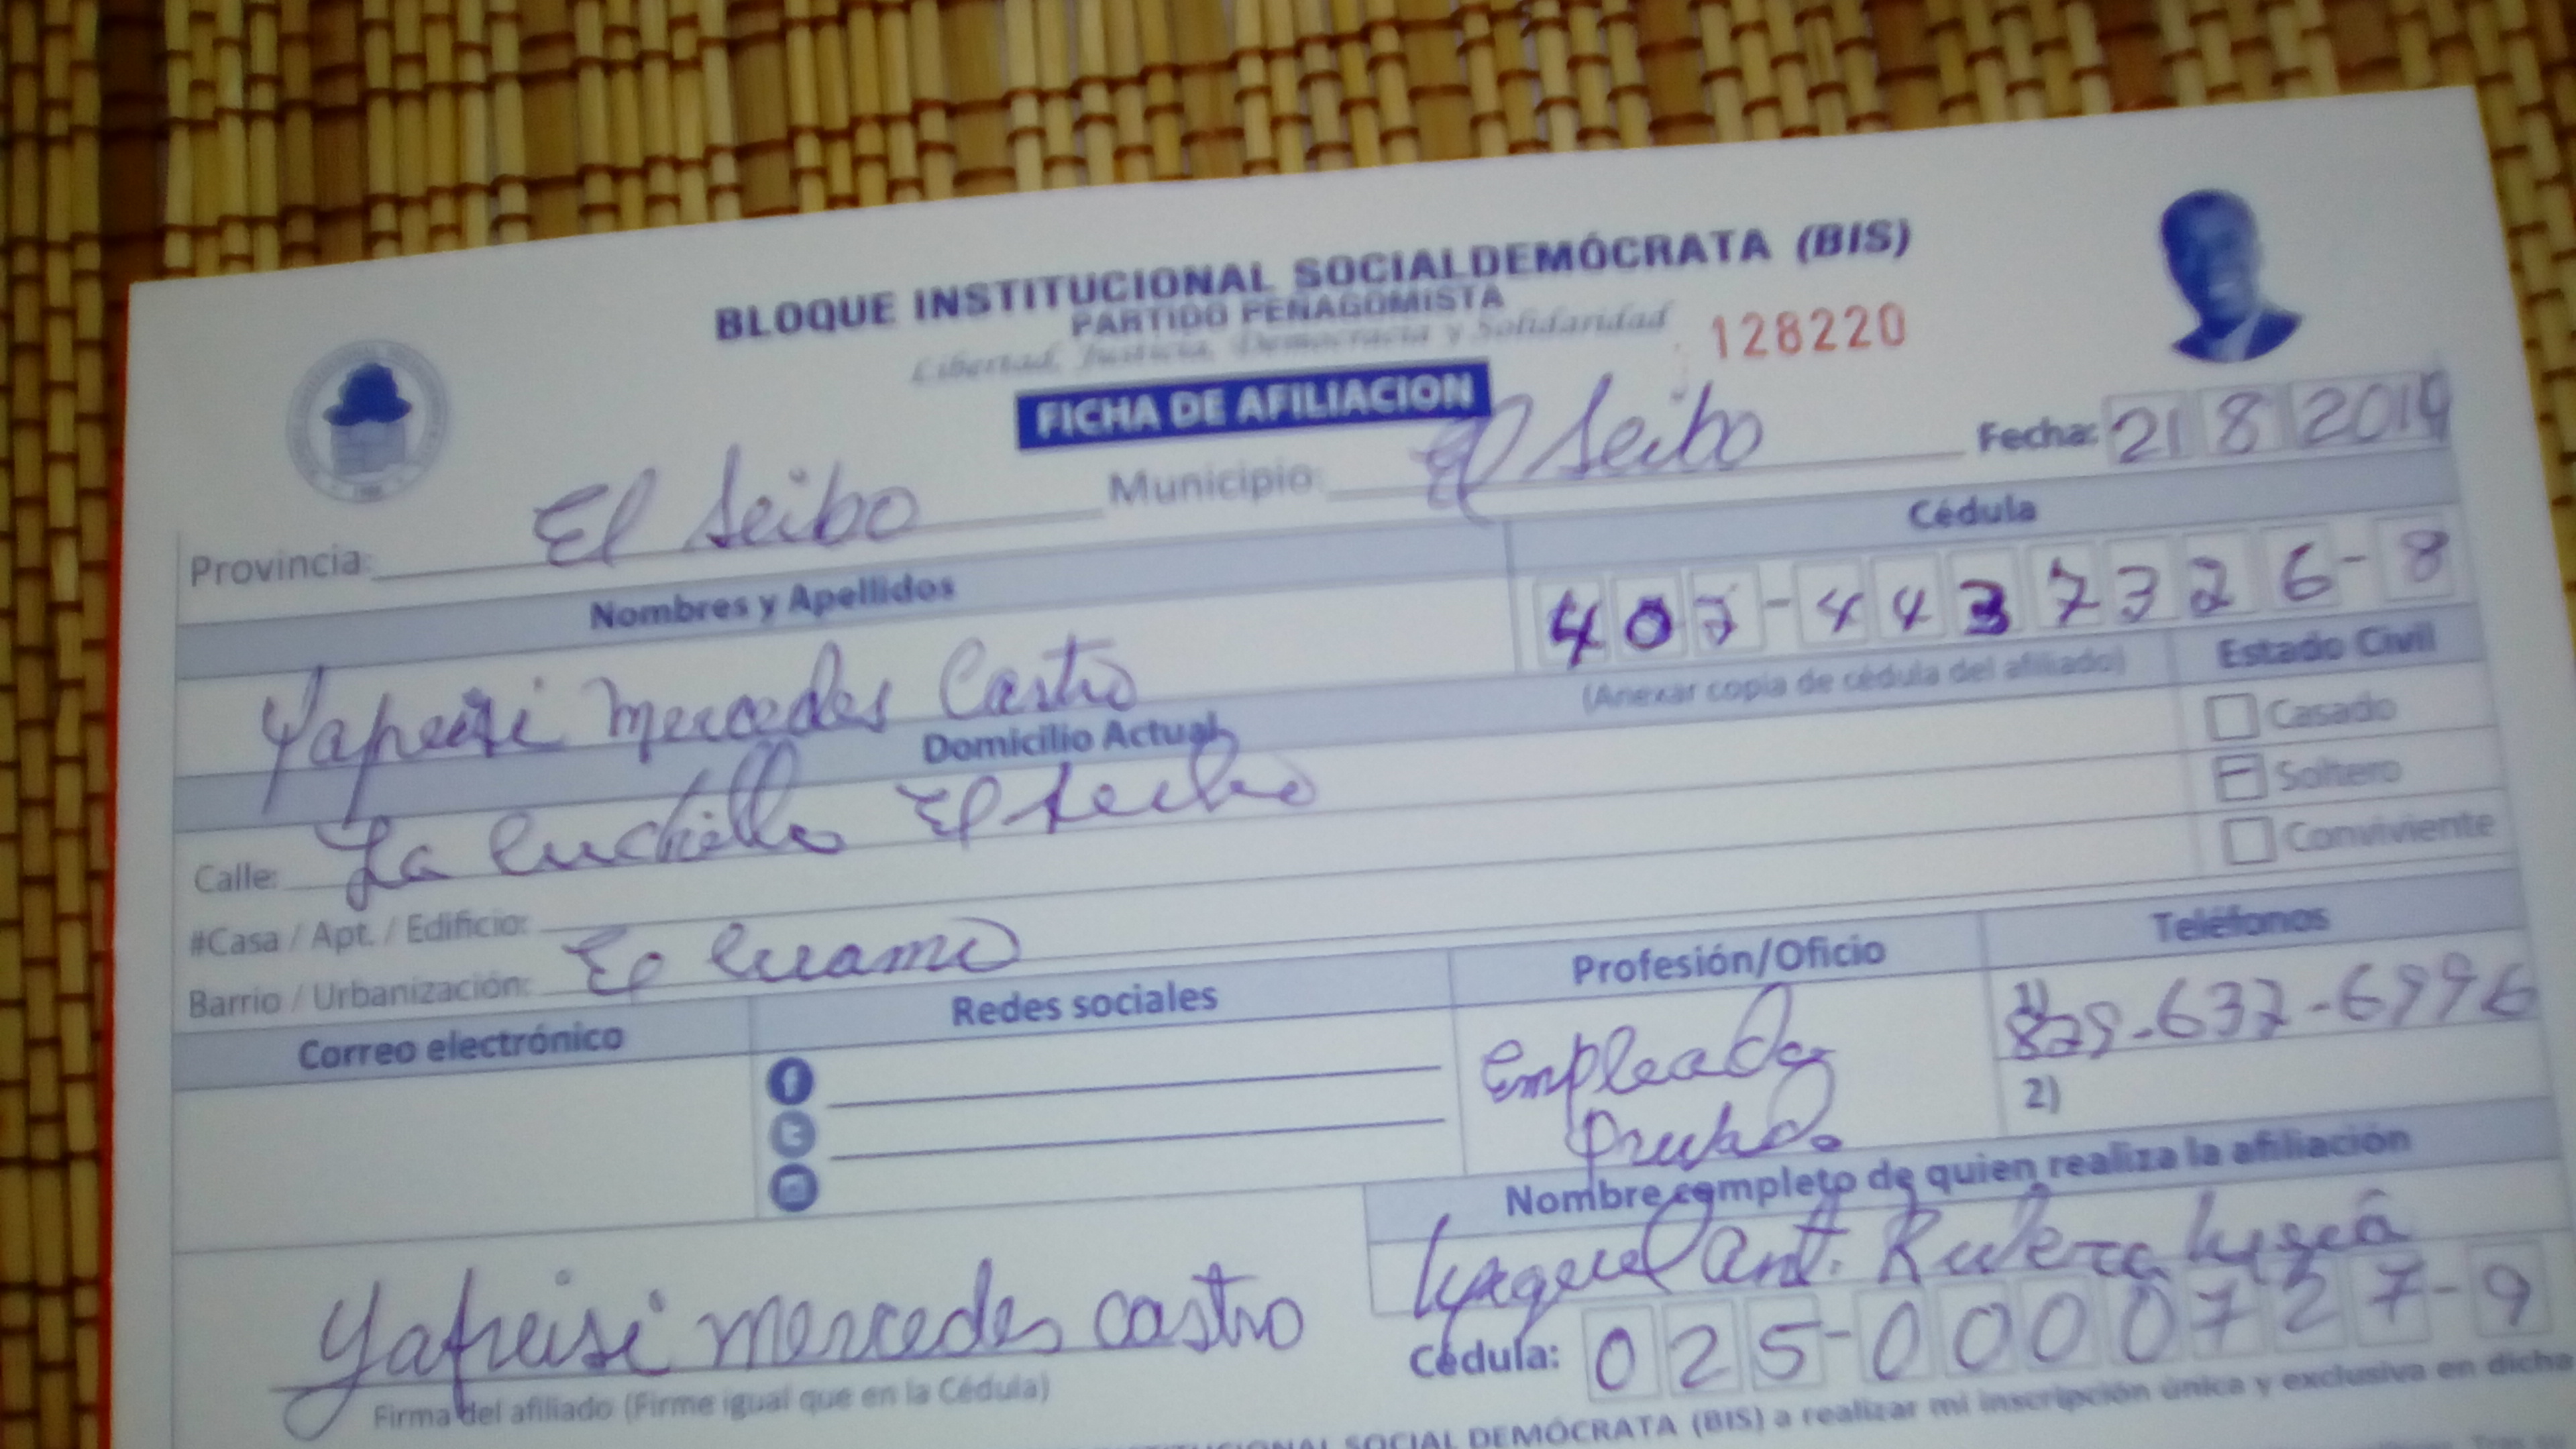 BLOQUE INSTITUCIONAL SOCIALDEMÓCRATA (BIS)
PARTIDO PEÑAGOMISTA
Libertad, Justicia, Democracia y Solidaridad
128220
FICHA DE AFILIACION
Provincia: El Seibo Municipio: El Seibo Fecha: 21 8 2019
Nombres y Apellidos Cédula
Yafreisi Mercedes Castro 407-4437326-8
(Anexar copia de cédula del afiliado) Estado Civil
Domicilio Actual
Casado
Calle: La Cuchilla El Seibo
Soltero
#Casa / Apt. / Edificio:
Conviviente
Barrio / Urbanización: El
Correo electrónico Redes sociales Profesión/Oficio Teléfonos
Empleada Privada
1) 829-637-6996
2)
Nombre completo de quien realiza la afiliación
Ant. Rivera
Cédula: 025-0000727-9
Yafreisi mercedes castro
Firma del afiliado (Firme igual que en la Cédula)
SOCIAL DEMÓCRATA (BIS) a realizar mi inscripción única y exclusiva en dicha